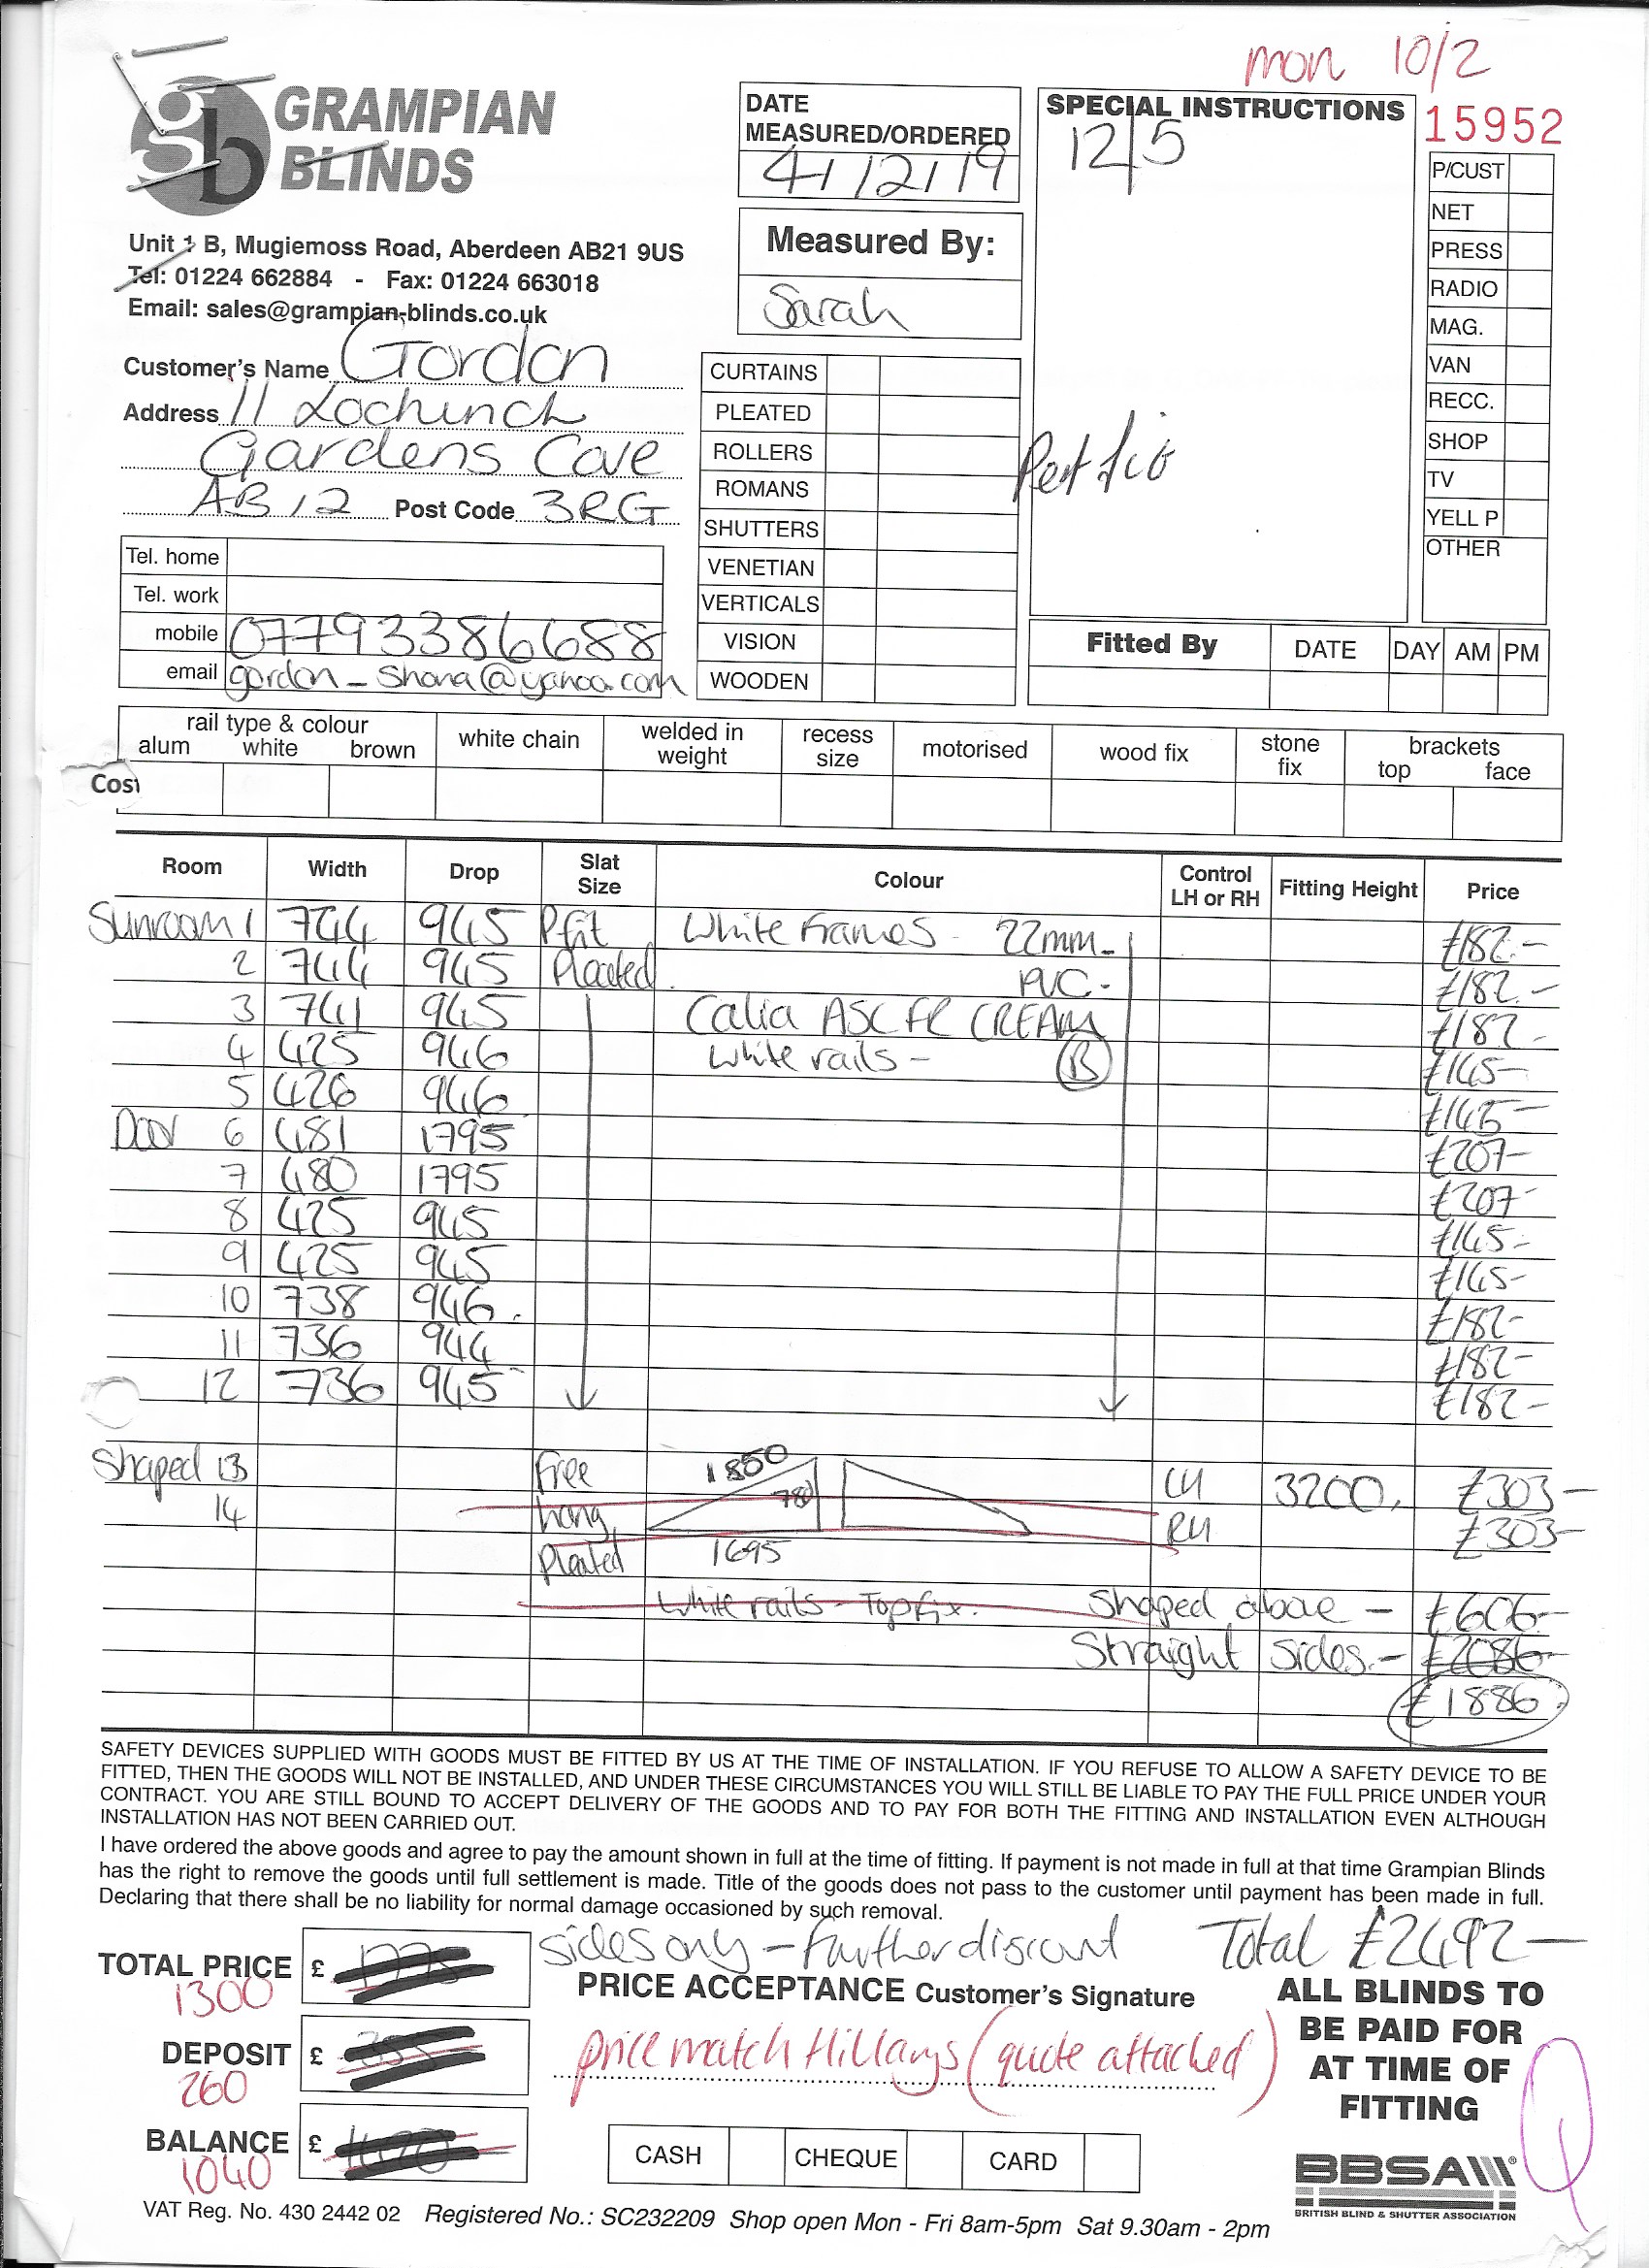 mon 10/2
GRAMPIAN
BLINDS
Unit 1 B, Mugiemoss Road, Aberdeen AB21 9US
Tel: 01224 662884 - Fax: 01224 663018
Email: sales@grampian-blinds.co.uk
Customer's Name Gordon
Address 11 Lochinch
Gardens Cove
AB12 Post Code 3RG
Tel. home
Tel. work
mobile 07793386688
email gordon_shona@yahoo.com
DATE
MEASURED/ORDERED
4/12/19
Measured By:
Sarah
CURTAINS
PLEATED
ROLLERS
ROMANS
SHUTTERS
VENETIAN
VERTICALS
VISION
WOODEN
SPECIAL INSTRUCTIONS
12/5
15952
P/CUST
NET
PRESS
RADIO
MAG.
VAN
RECC.
SHOP
TV
YELL P
OTHER
Fitted By DATE DAY AM PM
rail type & colour
alum white brown
white chain
welded in
weight
recess
size
motorised
wood fix
stone
fix
brackets
top face
Cost
Room Width Drop Slat Size Colour Control LH or RH Fitting Height Price
Sunroom 1 744 945 Pfit White frames - 22mm - £182.-
2 744 945 Pleated PVC - £182.-
3 741 945 Calia ASC FR CREAM £182.-
4 425 946 White rails - B £145-
5 426 946 £145-
Door 6 481 1795 £207-
7 480 1795 £207-
8 425 945 £145-
9 425 945 £145-
10 738 946. £182-
11 736 944 £182-
12 736 945 £182-
Shaped 13 Free 1850 780 LH 3200. £303-
14 hang RH £303-
Pleated 1695
White rails - Top fix. Shaped above - £606-
Straight sides.- £2086-
£1886
SAFETY DEVICES SUPPLIED WITH GOODS MUST BE FITTED BY US AT THE TIME OF INSTALLATION. IF YOU REFUSE TO ALLOW A SAFETY DEVICE TO BE
FITTED, THEN THE GOODS WILL NOT BE INSTALLED, AND UNDER THESE CIRCUMSTANCES YOU WILL STILL BE LIABLE TO PAY THE FULL PRICE UNDER YOUR
CONTRACT. YOU ARE STILL BOUND TO ACCEPT DELIVERY OF THE GOODS AND TO PAY FOR BOTH THE FITTING AND INSTALLATION EVEN ALTHOUGH
INSTALLATION HAS NOT BEEN CARRIED OUT.
I have ordered the above goods and agree to pay the amount shown in full at the time of fitting. If payment is not made in full at that time Grampian Blinds
has the right to remove the goods until full settlement is made. Title of the goods does not pass to the customer until payment has been made in full.
Declaring that there shall be no liability for normal damage occasioned by such removal.
sides only - further discount Total £2492-
TOTAL PRICE £
1300
DEPOSIT £
260
BALANCE £
1040
PRICE ACCEPTANCE Customer's Signature
price match Hillarys (quote attached)
CASH CHEQUE CARD
ALL BLINDS TO
BE PAID FOR
AT TIME OF
FITTING
BBSA
BRITISH BLIND & SHUTTER ASSOCIATION
VAT Reg. No. 430 2442 02 Registered No.: SC232209 Shop open Mon - Fri 8am-5pm Sat 9.30am - 2pm